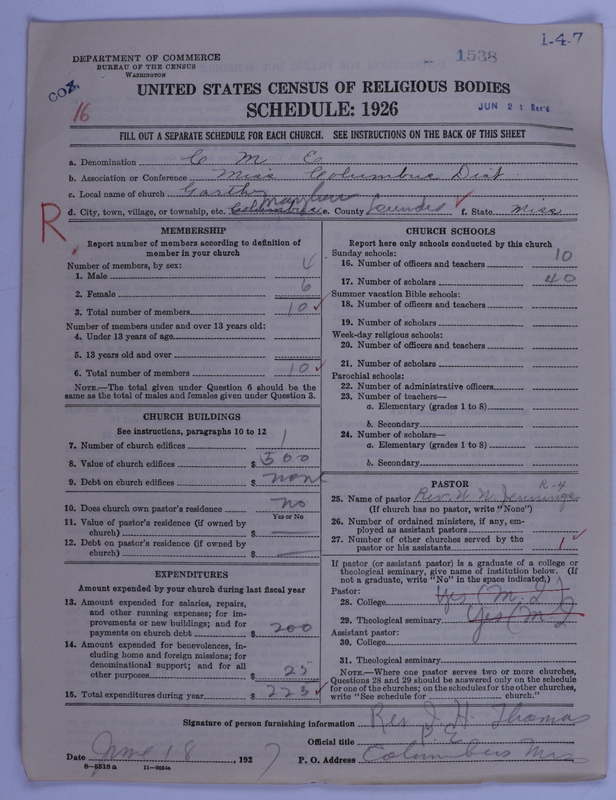 1-4-7
1538
DEPARTMENT OF COMMERCE
BUREAU OF THE CENSUS
WASHINGTON
16
UNITED STATES CENSUS OF RELIGIOUS BODIES
SCHEDULE: 1926
JUN 21 Rec'd
FILL OUT A SEPARATE SCHEDULE FOR EACH CHURCH. SEE INSTRUCTIONS ON THE BACK OF THIS SHEET
a. Denomination C M E
b. Association or Conference Miss Columbus Dist
c. Local name of church
d. City, town, village, or township, etc. Columbus e. County Lowndes f. State Miss
R
MEMBERSHIP
Report number of members according to definition of
member in your church
Number of members, by sex:
1. Male 4
2. Female 6
3. Total number of members 10
Number of members under and over 13 years old:
4. Under 13 years of age
5. 13 years old and over
6. Total number of members 10
NOTE.—The total given under Question 6 should be the
same as the total of males and females given under Question 3.
CHURCH BUILDINGS
See instructions, paragraphs 10 to 12
7. Number of church edifices 1
8. Value of church edifices $ 300
9. Debt on church edifices $ none
10. Does church own pastor's residence no
Yes or No
11. Value of pastor's residence (if owned by
church) $ —
12. Debt on pastor's residence (if owned by
church) $ —
EXPENDITURES
Amount expended by your church during last fiscal year
13. Amount expended for salaries, repairs,
and other running expenses; for im-
provements or new buildings; and for
payments on church debt $ 200
14. Amount expended for benevolences, in-
cluding home and foreign missions; for
denominational support; and for all
other purposes $ 25
15. Total expenditures during year $ 225
CHURCH SCHOOLS
Report here only schools conducted by this church
Sunday schools:
16. Number of officers and teachers 10
17. Number of scholars 40
Summer vacation Bible schools:
18. Number of officers and teachers
19. Number of scholars
Week-day religious schools:
20. Number of officers and teachers
21. Number of scholars
Parochial schools:
22. Number of administrative officers
23. Number of teachers—
a. Elementary (grades 1 to 8)
b. Secondary
24. Number of scholars—
a. Elementary (grades 1 to 8)
b. Secondary
PASTOR
R-4
25. Name of pastor Rev. N. N. Jennings
(If church has no pastor, write "None")
26. Number of ordained ministers, if any, em-
ployed as assistant pastors
27. Number of other churches served by the
pastor or his assistants 1
If pastor (or assistant pastor) is a graduate of a college or
theological seminary, give name of institution below. (If
not a graduate, write "No" in the space indicated.)
Pastor:
28. College Yes (M. I)
29. Theological seminary Yes (M I
Assistant pastor:
30. College
31. Theological seminary
NOTE.—Where one pastor serves two or more churches,
Questions 28 and 29 should be answered only on the schedule
for one of the churches; on the schedules for the other churches,
write "See schedule for church."
Signature of person furnishing information Rev J. H. Thomas
Official title P. E.
Date June 18, 1927 P. O. Address Columbus Miss
8-5518a 11-9034a